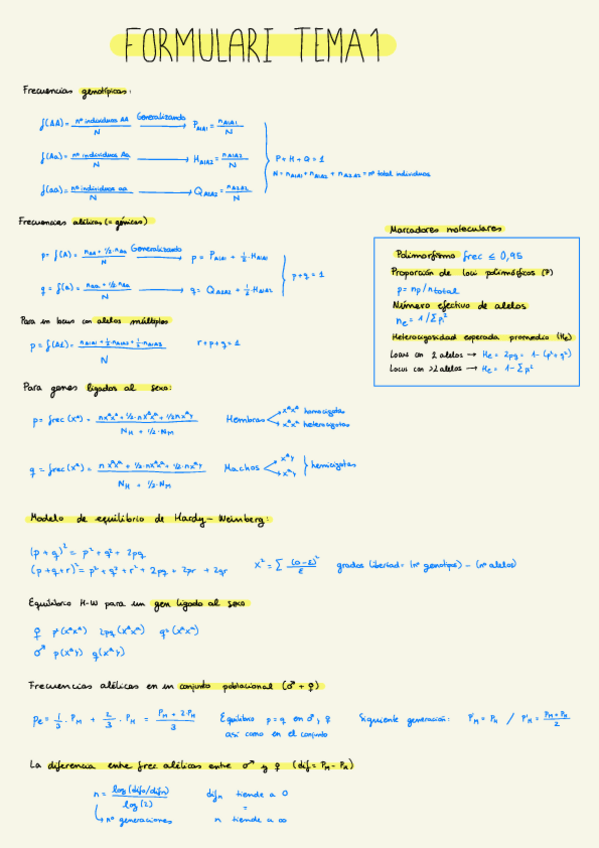 FORMULARI TEMA 1
Frecuencias genotípicas:
f(AA) = nº individuos AA / N Generalizando → P_A1A1 = n_A1A1 / N
f(Aa) = nº individuos Aa / N → H_A1A2 = n_A1A2 / N
f(aa) = nº individuos aa / N → Q_A2A2 = n_A2A2 / N
P + H + Q = 1
N = n_A1A1 + n_A1A2 + n_A2A2 = nº total individuos
Frecuencias alélicas (= génicas)
p = f(A) = n_AA + 1/2·n_Aa / N Generalizando → p = P_A1A1 + 1/2·H_A1A2
q = f(a) = n_aa + 1/2·n_Aa / N → q = Q_A2A2 + 1/2·H_A1A2
p + q = 1
Para un locus con alelos múltiples
p = f(A1) = n_A1A1 + 1/2·n_A1A2 + 1/2·n_A1A3 / N r + p + q = 1
Marcadores moleculares
Polimorfismo frec ≤ 0,95
Proporción de loci polimórficos (P)
p = np / n total
Número efectivo de alelos
n_e = 1 / Σ p_i²
Heterocigosidad esperada promedio (He)
Locus con 2 alelos → He = 2pq = 1 - (p² + q²)
Locus con >2 alelos → He = 1 - Σ p²
Para genes ligados al sexo:
Hembras homocigotas
heterocigotas
Machos hemicigotas
N_H + 1/2·N_M
Modelo de equilibrio de Hardy - Weinberg:
(p + q)² = p² + q² + 2pq
(p + q + r)² = p² + q² + r² + 2pq + 2pr + 2qr
X² = Σ (O - E)² / E grados libertad = (nº genotipos) - (nº alelos)
Equilibrio H-W para un gen ligado al sexo
Frecuencias alélicas en un conjunto poblacional (♂ + ♀)
Pe = 1/3 · P_M + 2/3 · P_H = P_M + 2·P_H / 3 Equilibrio p = q en ♂ y ♀ Siguiente generación: P'_M = P_H / P'_H = P_M + P_H / 2
así como en el conjunto
La diferencia entre frec alélicas entre ♂ y ♀ (dif = P_M - P_H)
n = log(dif₀/difₙ) / log(2) difₙ tiende a 0
=
↳ nº generaciones n tiende a ∞